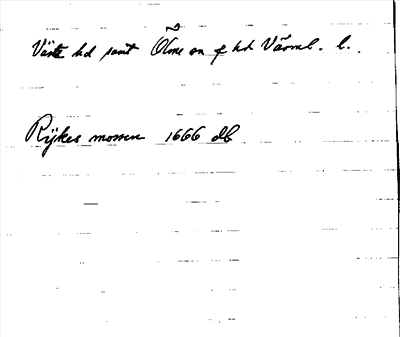 Väse hd samt Ölme sn o hd Värml. l.
Rijkes mossen 1666 db